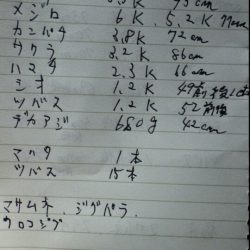 メジロ 6K 5.2K 77cm
カンパチ 3.8K 72cm
サワラ 3.2K 86cm
ハマチ 2.3K 66cm
シオ 1.2K 49前後
ツバス 1.2K 52前後
デカアジ 680g 42cm
マハタ 1本
ツバス 15本
マサムネ. ジグパラ.
クロコジグ